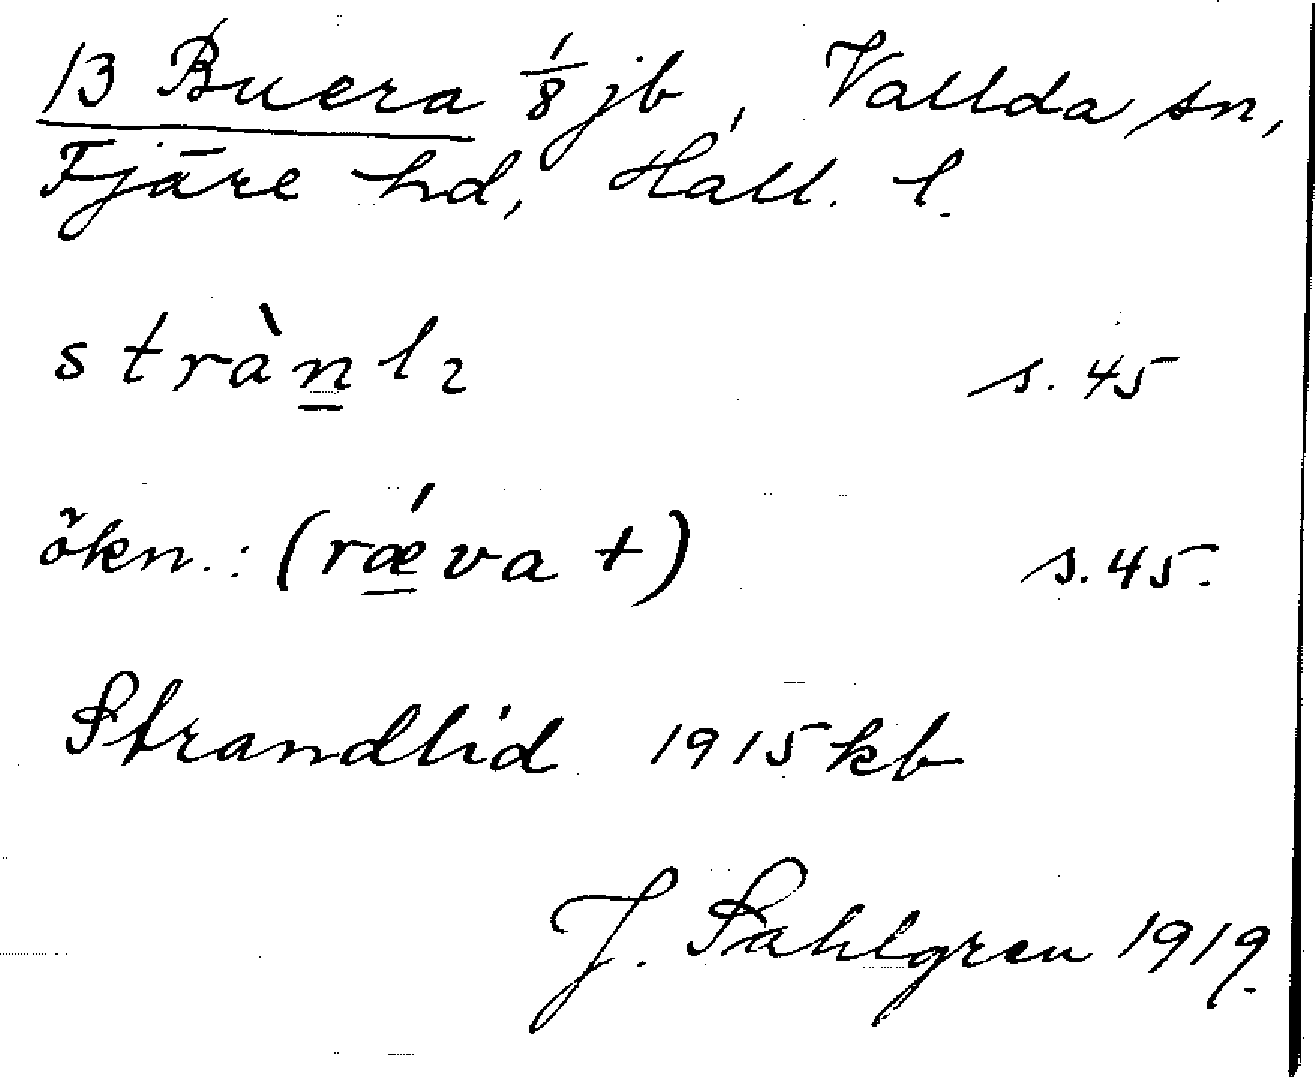 13 Buera 1/8 jb, Vallda sn,
Fjäre hd, Hall. l.
strànlı s. 45
ökn.: (rǽva +) s. 45.
Strandlid 1915 kb
J. Sahlgren 1919.